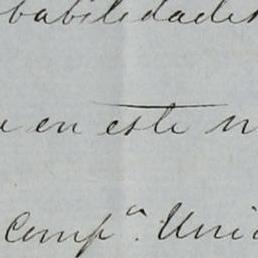 babilidades
en este
Comp.ª Uni